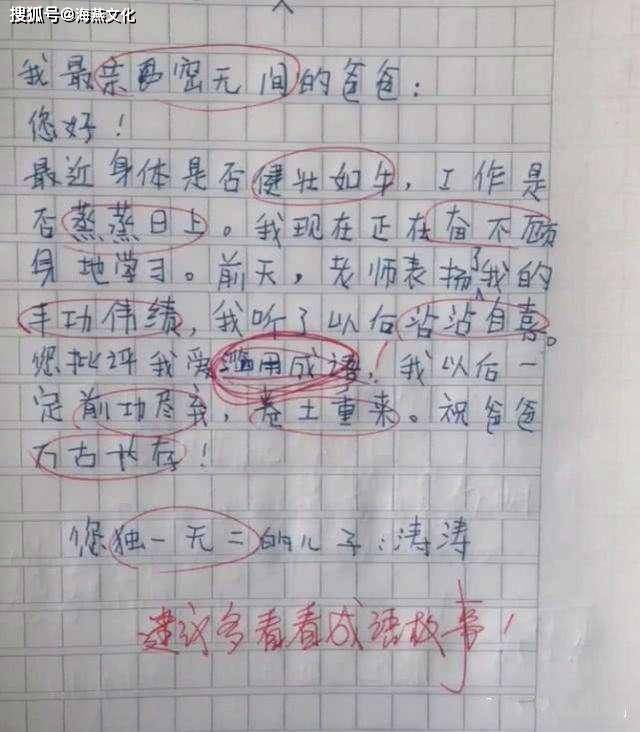 搜狐号@海燕文化
我最亲密无间的爸爸：
您好！
最近身体是否健壮如牛，工作是
否蒸蒸日上。我现在正在奋不顾
身地学习。前天，老师表扬了我的
丰功伟绩，我听了以后沾沾自喜。
您批评我爱滥用成语，我以后一
定前功尽弃，卷土重来。祝爸爸
万古长存！
您独一无二的儿子：涛涛
建议多看看成语故事！